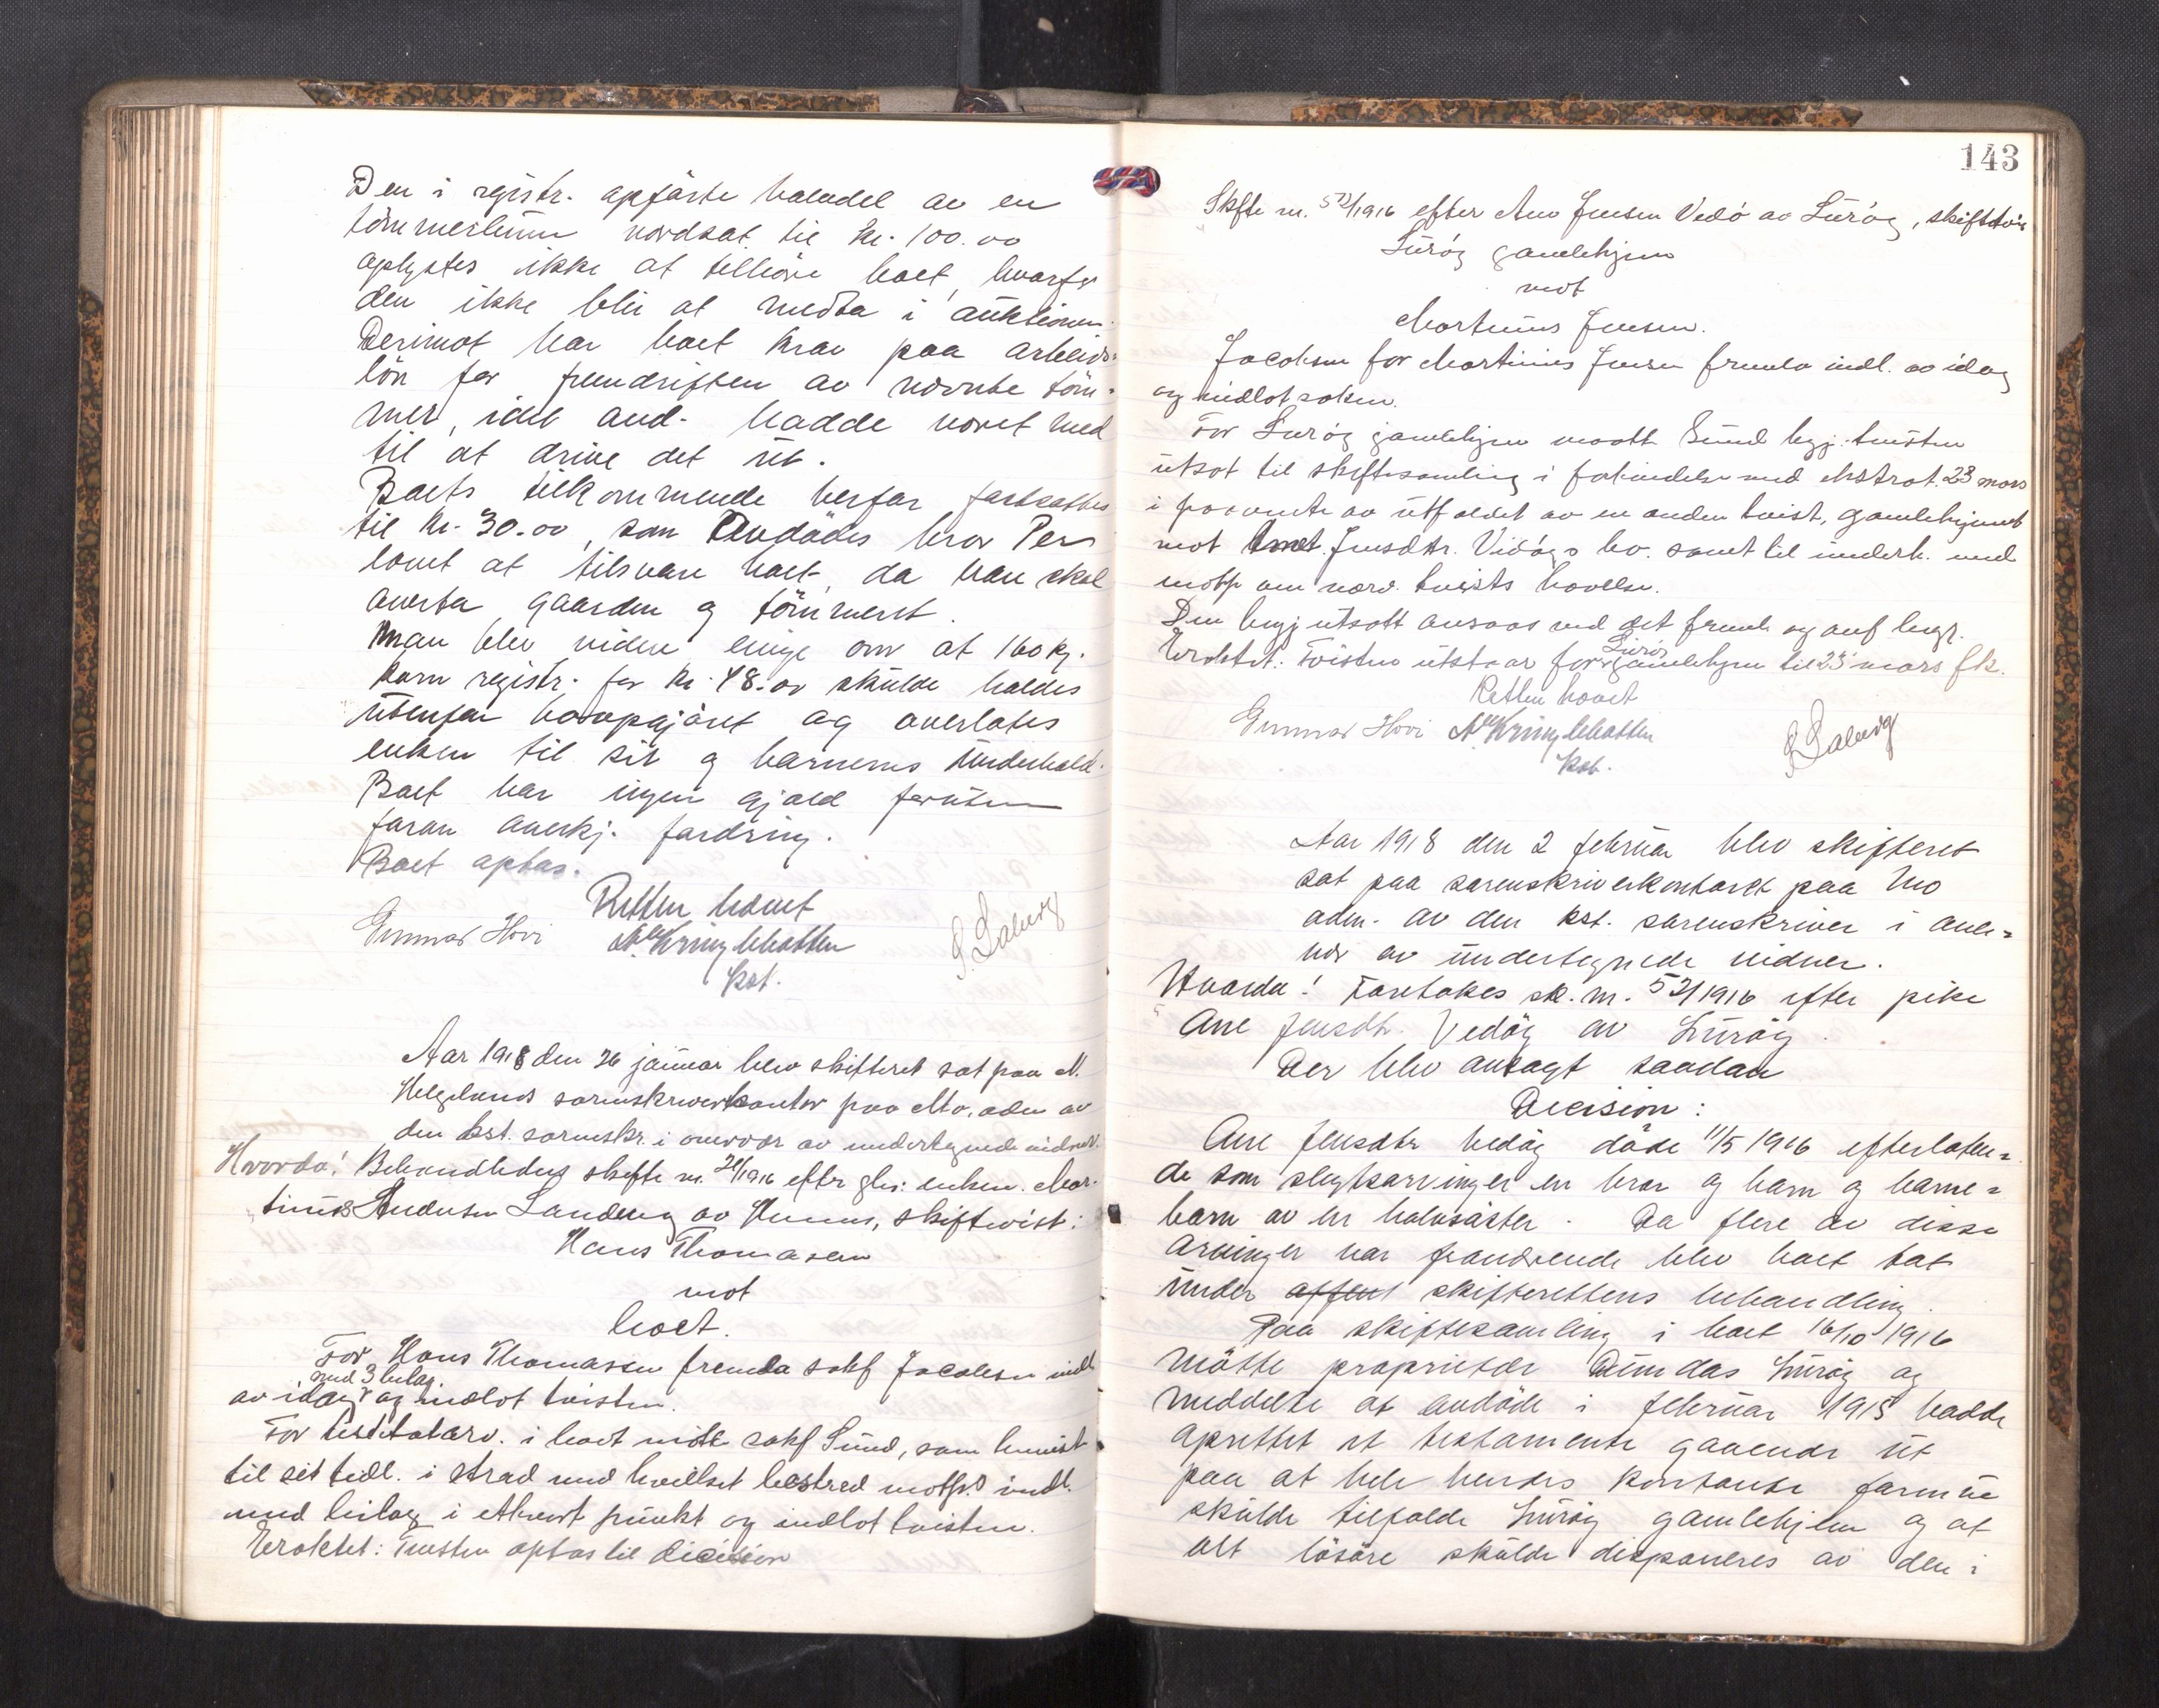 Den i registr. opförte halvdel av en
tömmerlunn verdsat til kr. 100.00
oplystes ikke at tilhöre boet, hvorfor
den ikke blir at medta i auktionen.
Derimot har boet krav paa arbeids-
lön for fremdriften av nævnte töm-
mer, idet avd. hadde været med
til at drive det ut.
Boets tilkommende herfor fastsattes
til kr. 30.00, som avdödes bror Per
lovet at tilsvare boet, da han skal
overta gaarden og tömmeret.
Man blev videre enige om at 160 kg.
korn registr. for kr. 48.00 skulde holdes
utenfor boopgjöret og overlates
enken til sit og barnenes underhold.
Boet har ingen gjæld foruten
foran anerkj. fordring.
Boet optas.
Retten hævet
Gunnar Hovi
kst.
Aar 1918 den 26 januar blev skifteret sat paa N.
Helgelands sorenskriverkontor paa Mo, adm av
den kst. sorenskr. i overvær av undertegnede vidner.
Hvorda! Behandledes skifte nr. 21/1916 efter enken Mar-
tinus Andersen Landeng av Hemnes, skiftetvist:
Hans Thomasen
mot
boet.
For Hans Thomasen fremla sakf Jacobsen indl
med 3 bilag
av idag og indlot tvisten.
For testatatarv. i boet mötte sakf Sund, som henviste
til sit tidl. i strid med hvilket bestred motp.s indl.
med bilag i ethvert punkt og indlot tvisten.
Eraktet: Tvisten optas til decision
143
Skifte nr. 52/1916 efter Ane Jensen Vedö av Luröy, skiftetvist
Luröy gamlehjem
mot
Martinus Jensen.
Jacobsen for Martinus Jensen fremla indl. av idag
og indlot saken.
For Luröy gamlehjem mötte Sund begj. tvisten
utsat til skiftesamling i forbindelse med ekstrat. 23 mars
i paavente av utfaldet av en anden tvist, gamlehjemmet
mot Jensdtr. Vidöys bo. samt til underh. med
motp om nærv. tvists hævelse.
Den begj utsætt ansaas ved det fremk og anf begr.
Luröy
Eraktet: Tvisten utstaar for gamlehjem til 23 mars fk.
Retten hævet
Gunnar Hovi
kst.
Aar 1918 den 2 februar blev skifteret
sat paa sorenskriverkontoret paa Mo
adm. av den kst. sorenskriver i over-
vær av undertegnede vidner.
Hvorda! Foretokes sk. nr. 52/1916 efter pike
Ane Jensdtr. Vedöy av Luröy.
Der blev avsagt saadan
Decision:
Ane Jensdtr Vedöy döde 11/5 1916 efterlaten-
de som slegtsarvinger en bror og barn og barne-
barn av en halvsöster. Da flere av disse
arvinger var fraværende blev boet tat
under offent skifterettens behandling.
Paa skiftesamling i boet 16/10 1916
mötte proprietær Dundas Luröy og
meddelte at avdöde i februar 1915 hadde
oprettet et testamente gaaende ut
paa at hele hendes kontante formue
skulde tilfalde Luröy gamlehjem og at
alt lösöre skulde disponeres av den i